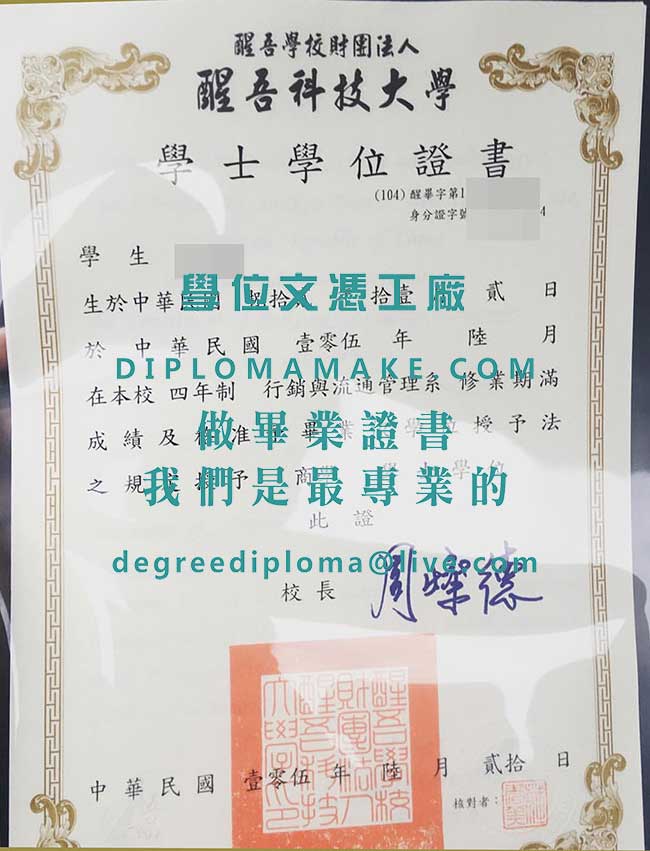 醒吾學校財團法人
醒吾科技大學
學士學位證書
(104) 醒畢字第1
身分證字號 4
學生
生於中華民國 拾壹 貳日
學位文憑工廠
於中華民國 壹零伍年 陸月
DIPLOMAMAKE.COM
在本校 四年制 行銷與流通管理系 修業期滿
做畢業證書
成績及格准 畢業 學位授予法
我們是最專業的
之規定授予 商 學士學位
此證
degreediploma@live.com
校長 周燦德
中華民國 壹零伍年 陸月 貳拾日
核對者：